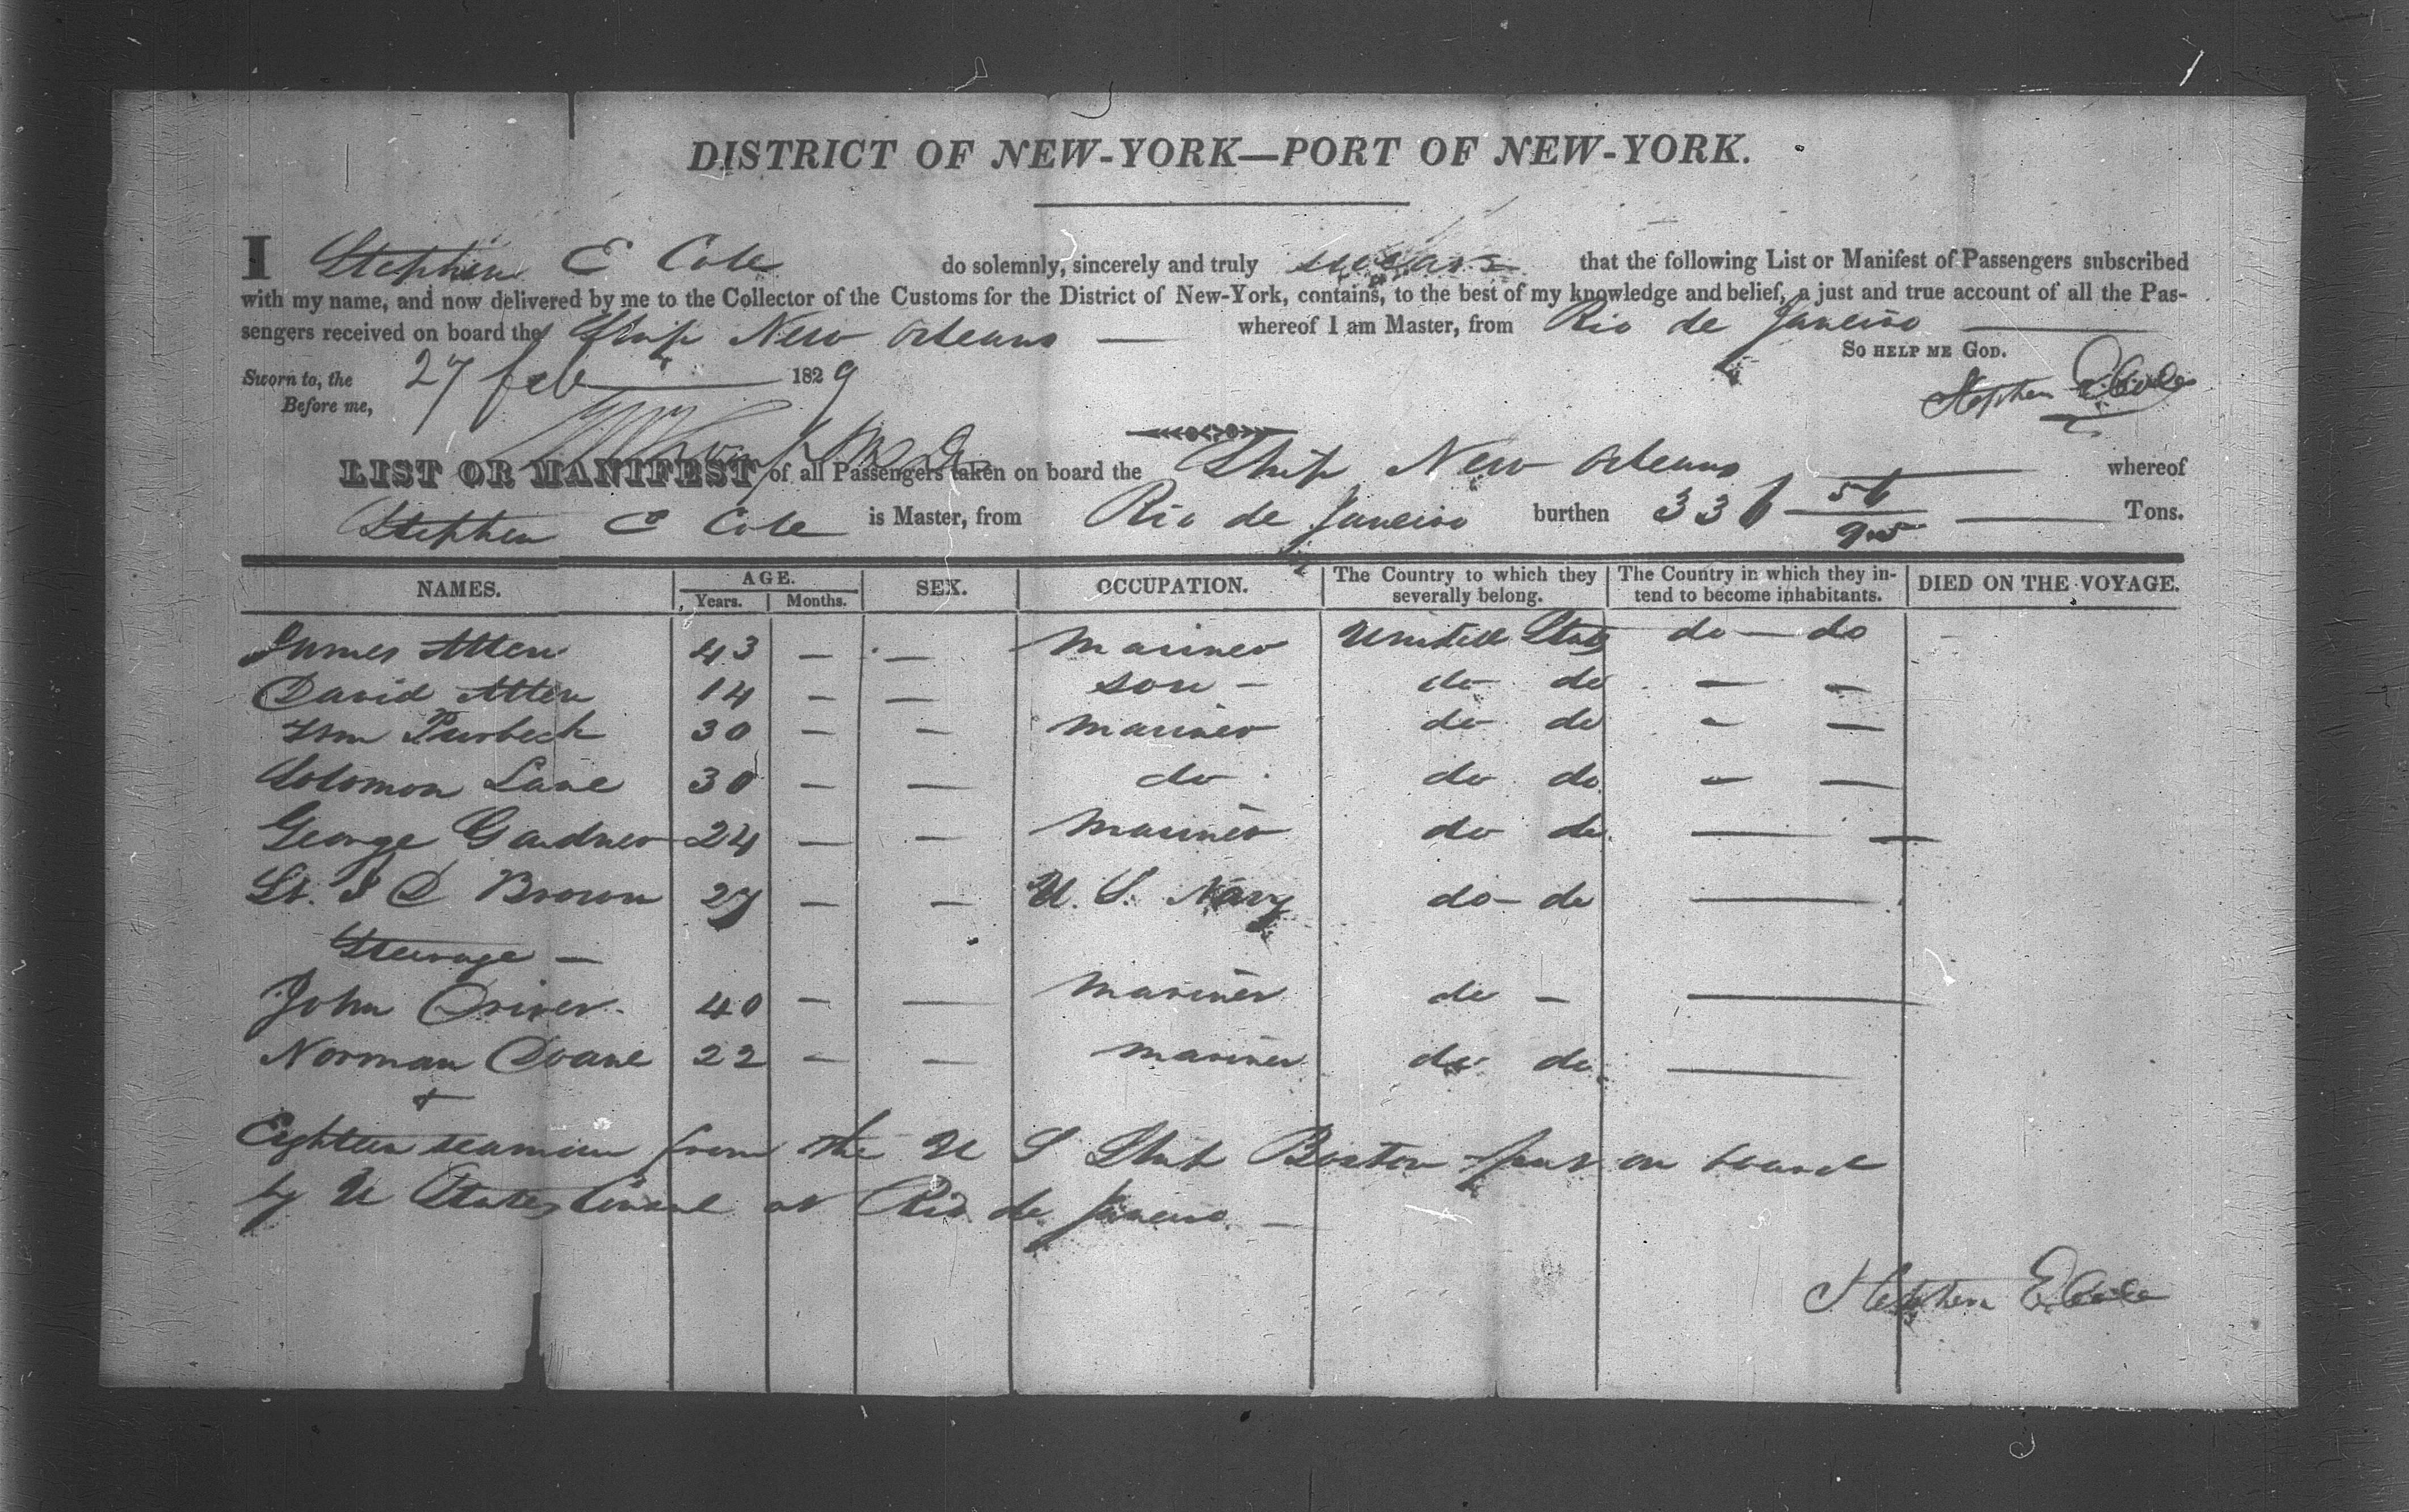 DISTRICT OF NEW-YORK—PORT OF NEW-YORK.
I Stephen E Cole do solemnly, sincerely and truly swear that the following List or Manifest of Passengers subscribed
with my name, and now delivered by me to the Collector of the Customs for the District of New-York, contains, to the best of my knowledge and belief, a just and true account of all the Pas-
sengers received on board the Ship New Orleans — whereof I am Master, from Rio de Janeiro —
So help me God.
Sworn to, the 27 feb — 1829
Before me,
Stephen E Cole
LIST OR MANIFEST of all Passengers taken on board the Ship New Orleans — whereof
Stephen E Cole is Master, from Rio de Janeiro burthen 336 56/95 — Tons.
NAMES. AGE. SEX. OCCUPATION. The Country to which they severally belong. The Country in which they in- tend to become inhabitants. DIED ON THE VOYAGE.
Years. Months.
James Allen 43 — — Mariner United States do — do
David Allen 14 — — son — do do — —
Wm Purbeck 30 — — Mariner do do — —
Solomon Lane 30 — — do do do — —
George Gardner 24 — — Mariner do do —
Lt. J D Brown 27 — — U. S. Navy do — do —
Steerage —
John Driver 40 — — Mariner do — —
Norman Doane 22 — — mariner do do —
+
Eighteen seamen from the U S Ship Boston put on board
by U States Consul at Rio de Janeiro —
Stephen E Cole